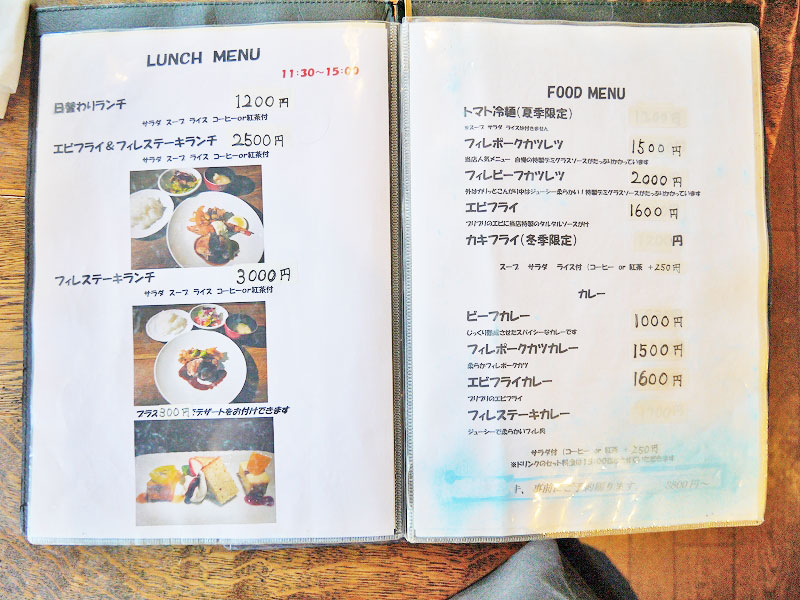 LUNCH MENU
11:30～15:00
日替わりランチ 1200円
サラダ スープ ライス コーヒーor紅茶付
エビフライ＆フィレステーキランチ 2500円
サラダ スープ ライス コーヒーor紅茶付
フィレステーキランチ 3000円
サラダ スープ ライス コーヒーor紅茶付
プラス300円でデザートをお付けできます
FOOD MENU
トマト冷麺(夏季限定)
※スープ サラダ ライスは付きません
フィレポークカツレツ 1500円
当店人気メニュー 自慢の特製デミグラスソースがたっぷりかかっています
フィレビーフカツレツ 2000円
外はカリっとこんがり中はジューシー柔らかい！特製デミグラスソースがたっぷりかかっています
エビフライ 1600円
プリプリのエビに当店特製のタルタルソースが付
カキフライ(冬季限定) 円
スープ サラダ ライス付 (コーヒー or 紅茶 +250円
カレー
ビーフカレー 1000円
じっくり熟成させたスパイシーなカレーです
フィレポークカツカレー 1500円
柔らかフィレポークカツ
エビフライカレー 1600円
プリプリのエビフライ
フィレステーキカレー
ジューシーで柔らかいフィレ肉
サラダ付 (コーヒー or 紅茶 + 250円
※ドリンクのセット料